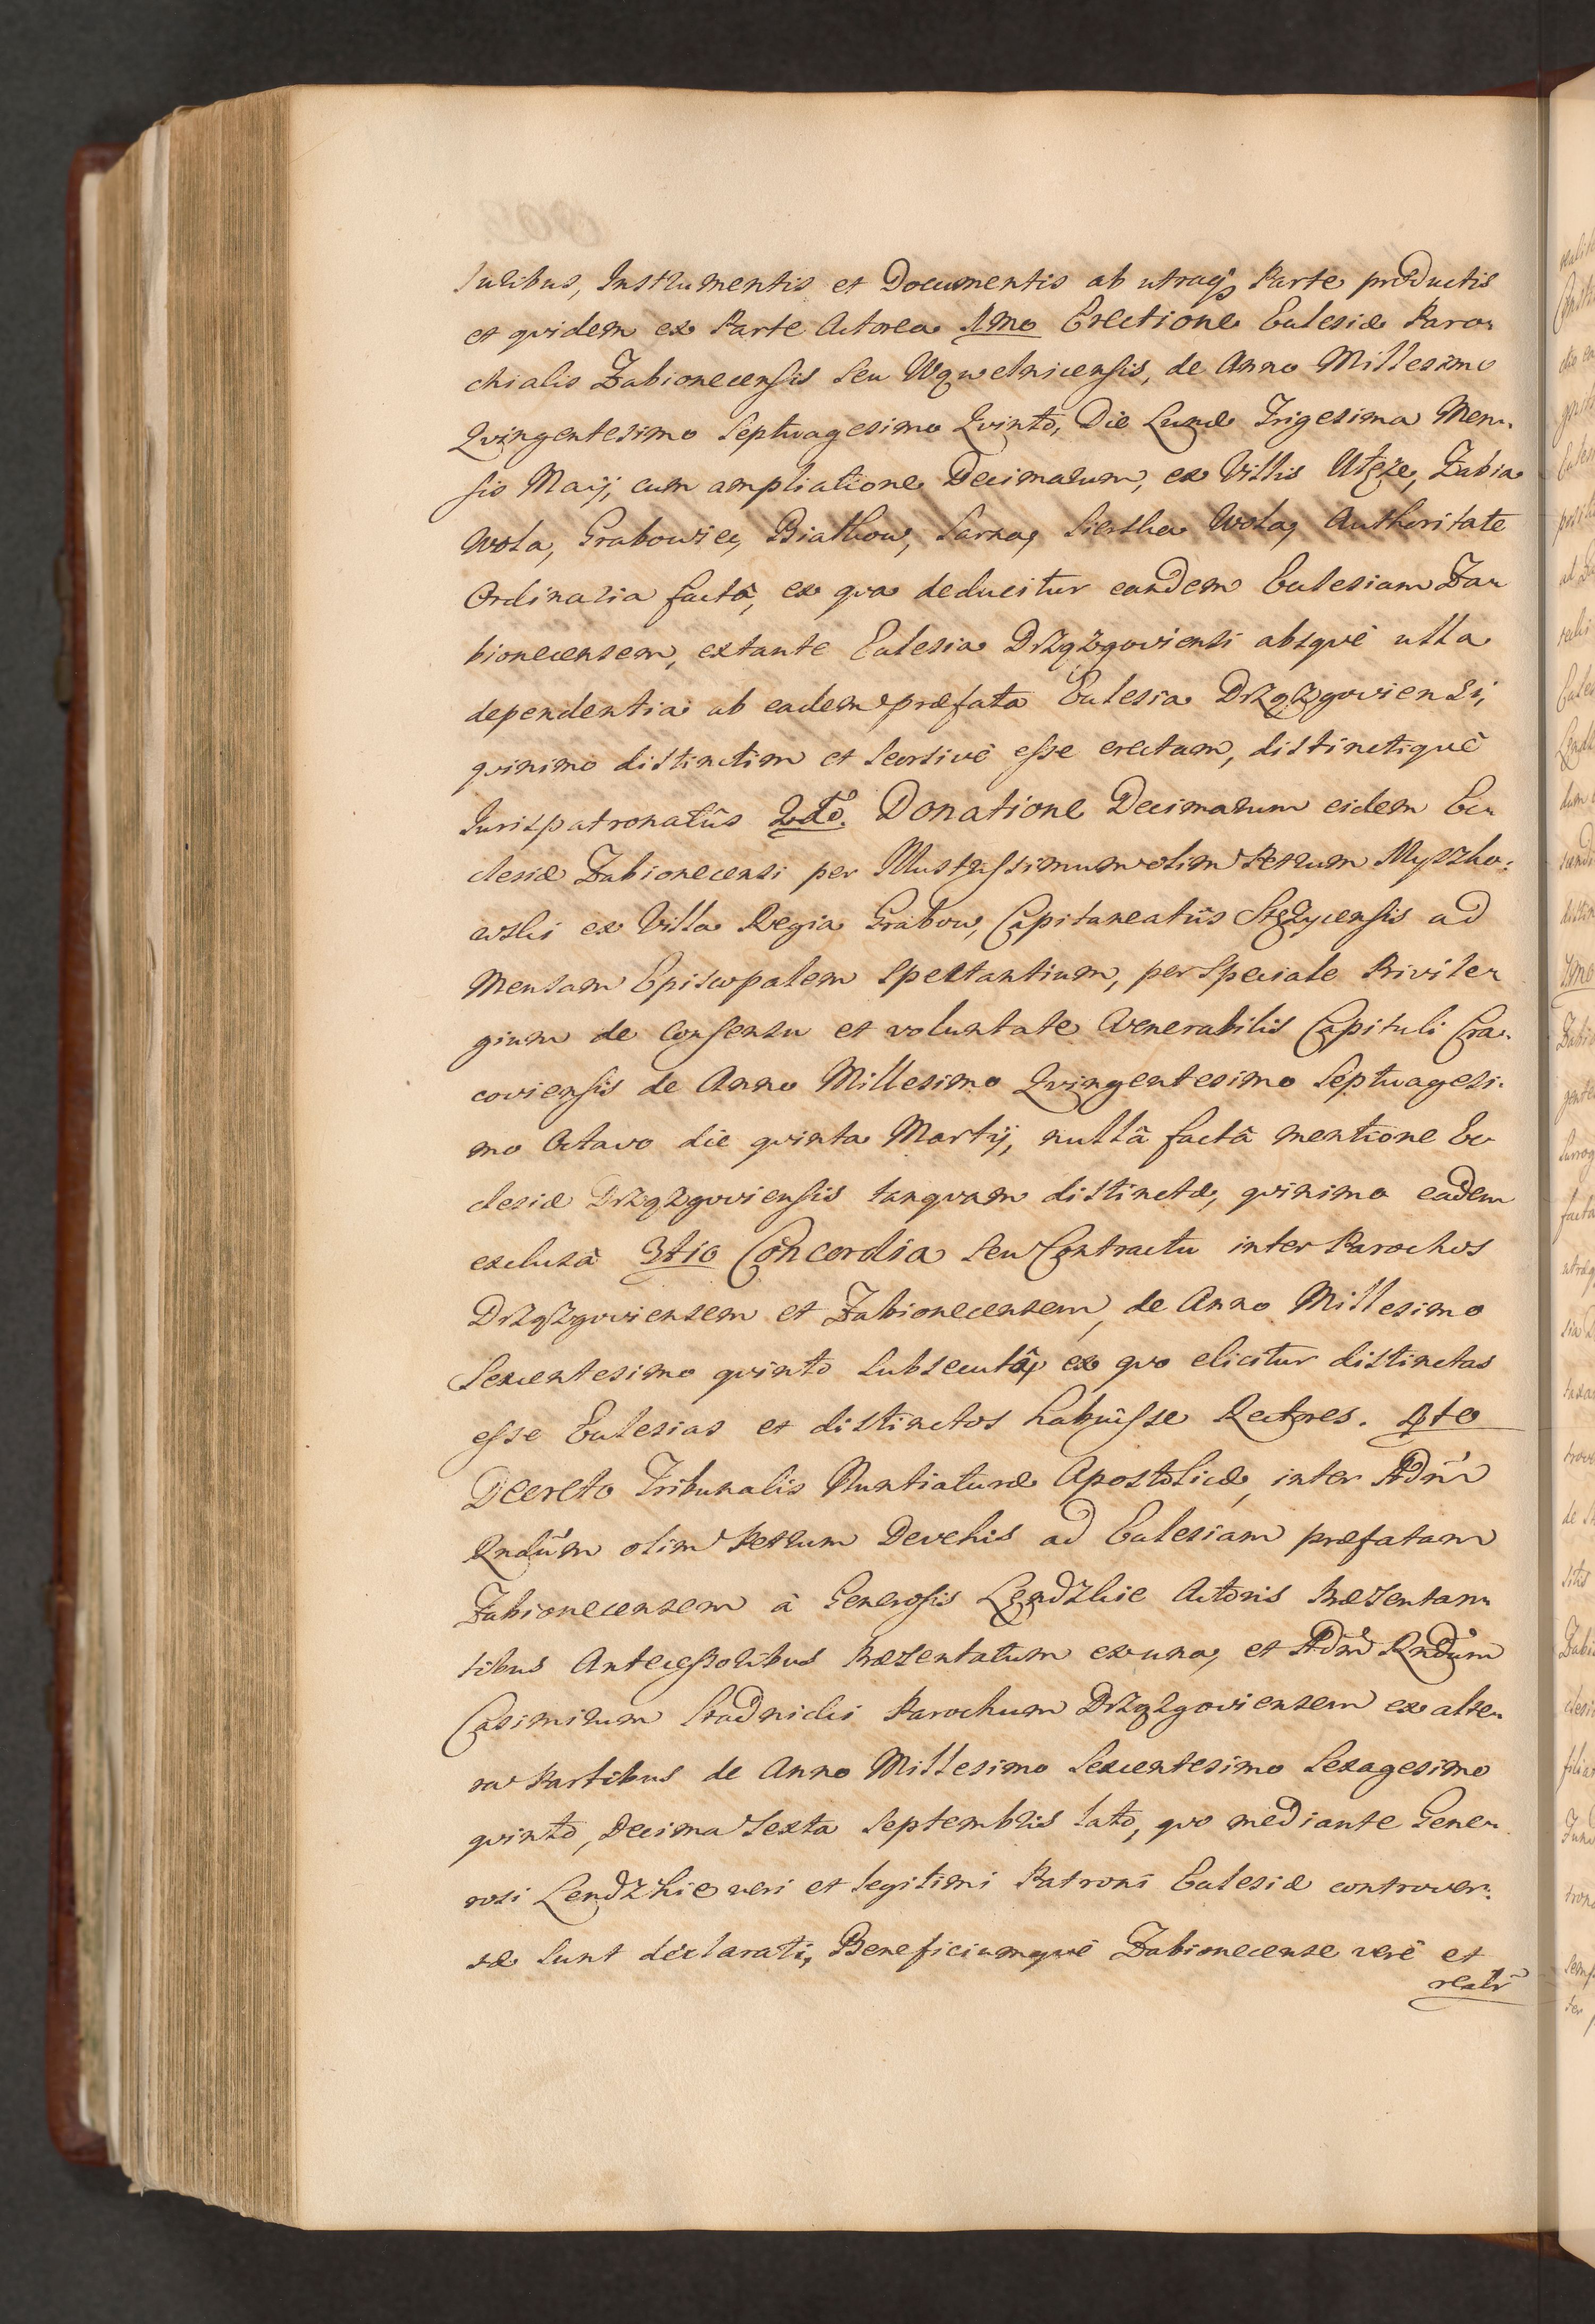 Iuribus, Instrumentis et Documentis ab utraq; Parte productis
et qvidem ex Parte Actorea 1mo Erectione Eclesiæ Paro-
chialis Zabionecensis seu Wąwelnicensis, de Anno Millesimo
Qvingentesimo Septuagesimo Qvinto, Die Lunæ Trigesima Men-
sis Maij, cum ampliatione Decimarum, ex Villis Ułęże, Zabia
Wola, Grabowiec, Białkow, Sarna, Sierska Wola, Authoritate
Ordinaria factâ, ex qva deducitur eandem Eclesiam Za-
bionecensem, extante Eclesia Drzązgoviensi absqvè ulla
dependentia ab eadem præfata Eclesia Drzązgoviensi,
qvinimo distinctim et seorsivè esse erectam, distinctiqvè
Jurispatronatûs 2do. Donatione Decimarum eidem Ec-
clesiæ Zabionecensi per Illustrissimum olim Petrum Myszko-
wski ex Villa Regia Grabow, Capitaneatûs Stęzycensis ad
Mensam Episcopalem spectantium, per speciale Privile-
gium de Consensu et voluntate Venerabilis Capituli Cra-
coviensis de Anno Millesimo Qvingentesimo Septuagesi-
mo Octavo die qvinta Martij, nullâ factâ mentione Ec-
clesiæ Drzązgoviensis tanqvam distinctæ, qvinimo eadem
exclusâ 3tio Concordia seu Contractu inter Parochos
Drzązgoviensem et Zabionecensem, de Anno Millesimo
Sexcentesimo qvinto subsecutâ, ex qvo elicitur distinctas
esse Eclesias et distinctos habuisse Rectores. 4to
Decreto Tribunalis Nuntiaturæ Apostolicæ, inter Adm̃
Rndũm olim Petrum Devehis ad Eclesiam præfatam
Zabionecensem à Generosis Lendzkie Actoris Præsentan-
tibus Antecessoribus Præsentatum ex una, et Adm̃ Rndũm
Casimirum Stadnicki Parochum Drzązgoviensem ex alte-
ra Partibus de Anno Millesimo Sexcentesimo Sexagesimo
qvinto, Decima Sexta Septembris lato, qvo mediante Gene-
rosi Lendzkie veri et legitimi Patroni Eclesiæ controver-
sæ sunt declarati, Beneficiumqvè Zabionecense verè et
realr̃